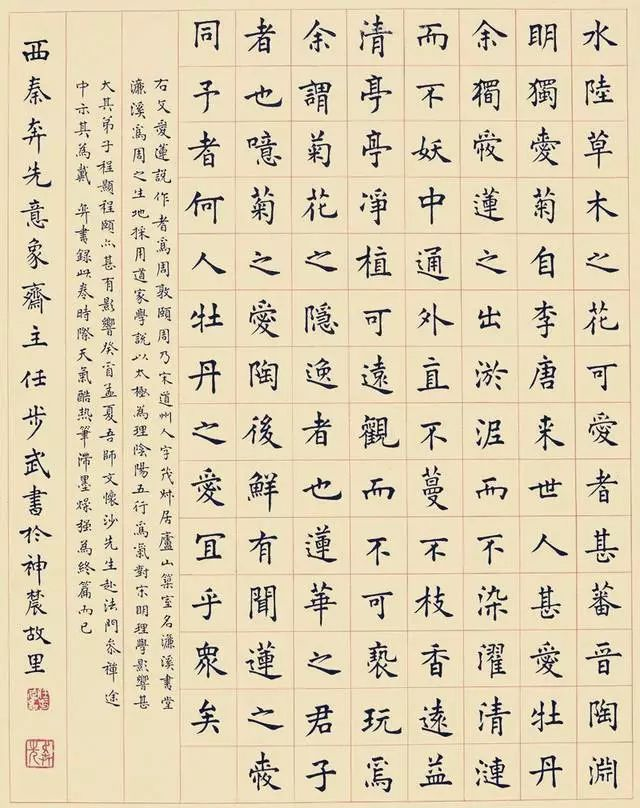 水陸草木之花可愛者甚蕃晉陶淵
明獨愛菊自李唐來世人甚愛牡丹
余獨愛蓮之出淤泥而不染濯清漣
而不妖中通外直不蔓不枝香遠益
清亭亭淨植可遠觀而不可褻玩焉
余謂菊花之隱逸者也蓮華之君子
者也噫菊之愛陶後鮮有聞蓮之愛
同予者何人牡丹之愛冝乎眾矣
右文愛蓮說作者為周敦頤周乃宋道州人字茂叔居廬山築室名濂溪書堂
濂溪為周之生地採用道家學說以太極為理陰陽五行為氣對宋明理學影響甚
大其弟子程顥程頤亦甚有影響癸酉孟夏吾師文懷沙先生赴法門參禪途
中示其為 書錄此 時際天氣酷熱筆滯墨燥強為終篇而已
西秦奔先意象齋主任步武書於神農故里